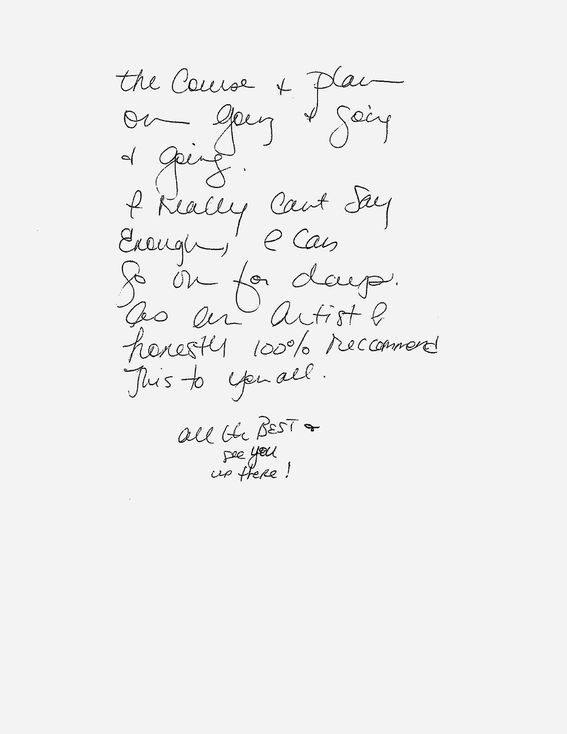 the Course & plan
on going & going
& going.
I Really Cant Say
Enough, I Can
Go on for days.
As an Artist I
honestly 100% Reccommend
This to you all.
all the BEST &
see you
up there!